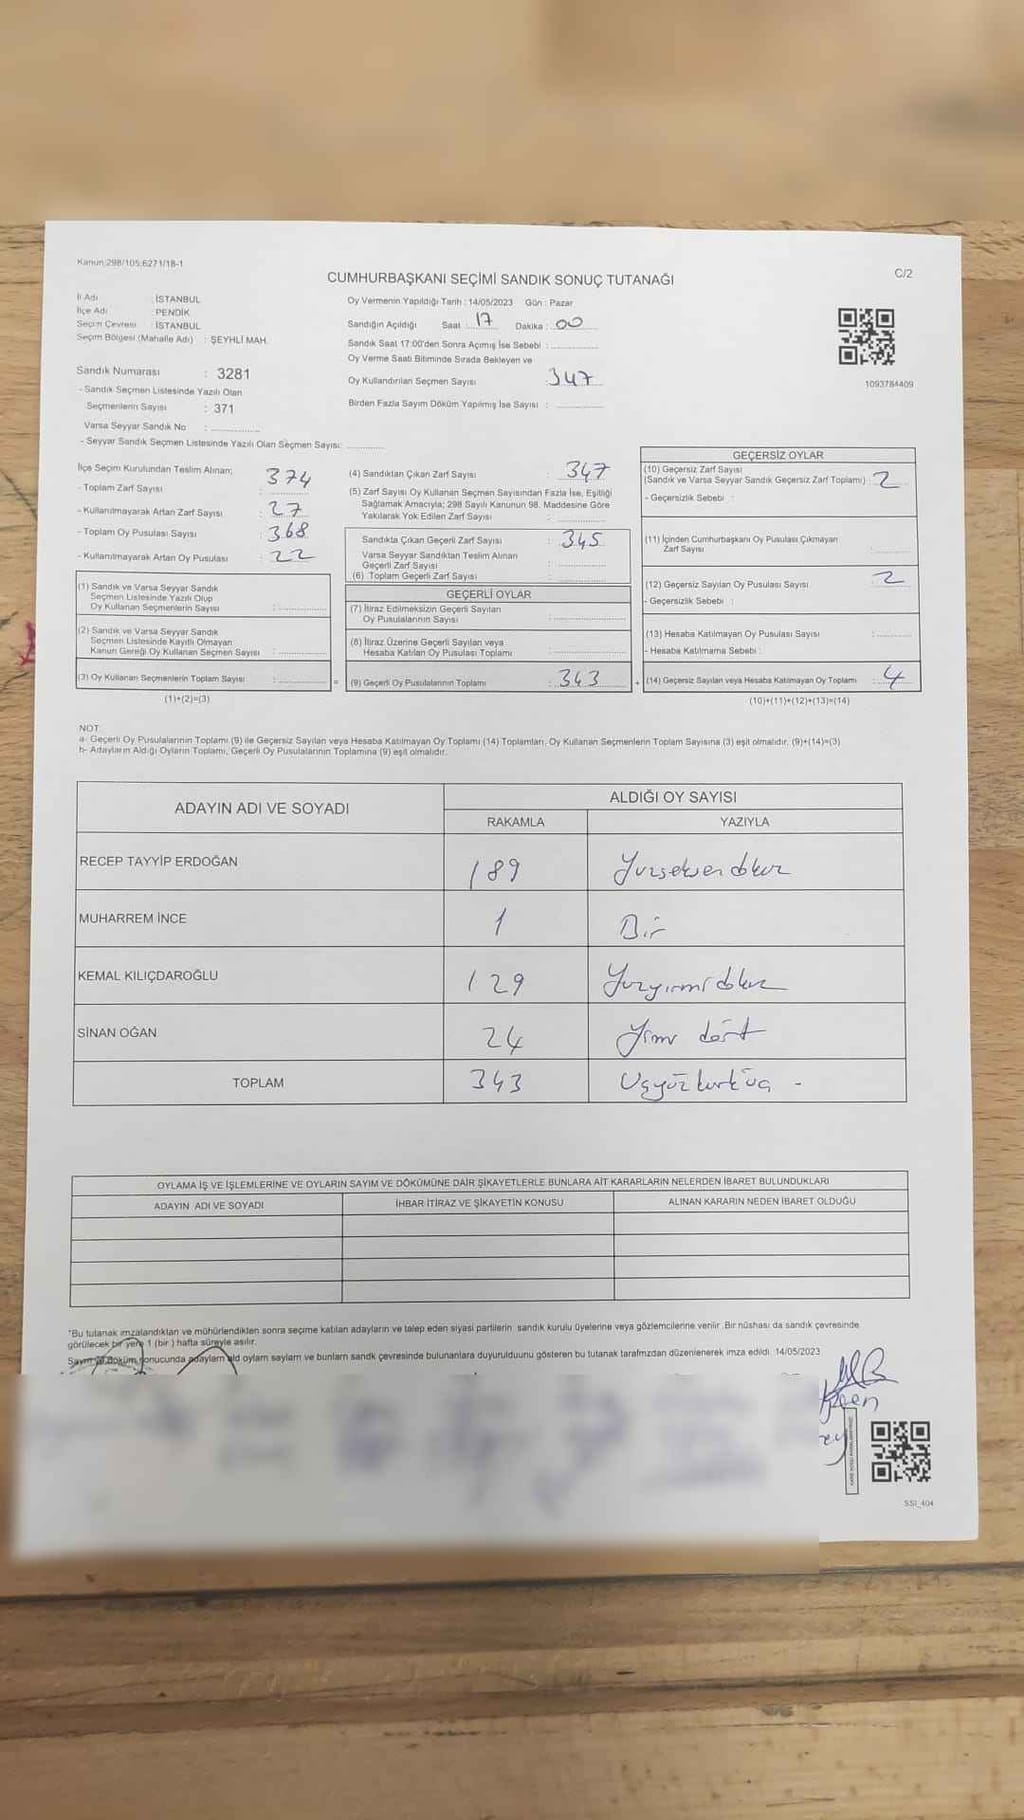 Kanun:298/105;6271/18-1
CUMHURBAŞKANI SEÇİMİ SANDIK SONUÇ TUTANAĞI
C/2
İl Adı : İSTANBUL
İlçe Adı : PENDİK
Seçim Çevresi : İSTANBUL
Seçim Bölgesi (Mahalle Adı) : ŞEYHLİ MAH.
Sandık Numarası : 3281
- Sandık Seçmen Listesinde Yazılı Olan
Seçmenlerin Sayısı : 371
Varsa Seyyar Sandık No :
- Seyyar Sandık Seçmen Listesinde Yazılı Olan Seçmen Sayısı:
Oy Vermenin Yapıldığı Tarih : 14/05/2023 Gün : Pazar
Sandığın Açıldığı Saat : 17 Dakika : 00
Sandık Saat 17:00'den Sonra Açımış İse Sebebi :
Oy Verme Saati Bitiminde Sırada Bekleyen ve
Oy Kullandırılan Seçmen Sayısı : 347
Birden Fazla Sayım Döküm Yapılmış İse Sayısı :
1093784409
İlçe Seçim Kurulundan Teslim Alınan;
- Toplam Zarf Sayısı : 374
- Kullanılmayarak Artan Zarf Sayısı : 27
- Toplam Oy Pusulası Sayısı : 368
- Kullanılmayarak Artan Oy Pusulası : 22
(1) Sandık ve Varsa Seyyar Sandık
Seçmen Listesinde Yazılı Olup
Oy Kullanan Seçmenlerin Sayısı :
(2) Sandık ve Varsa Seyyar Sandık
Seçmen Listesinde Kayıtlı Olmayan
Kanun Gereği Oy Kullanan Seçmen Sayısı :
(3) Oy Kullanan Seçmenlerin Toplam Sayısı : =
(1)+(2)=(3)
(4) Sandıktan Çıkan Zarf Sayısı : 347
(5) Zarf Sayısı Oy Kullanan Seçmen Sayısından Fazla İse, Eşitliği
Sağlamak Amacıyla; 298 Sayılı Kanunun 98. Maddesine Göre
Yakılarak Yok Edilen Zarf Sayısı :
Sandıkta Çıkan Geçerli Zarf Sayısı : 345
Varsa Seyyar Sandıktan Teslim Alınan
Geçerli Zarf Sayısı :
(6) Toplam Geçerli Zarf Sayısı :
GEÇERLİ OYLAR
(7) İtiraz Edilmeksizin Geçerli Sayılan
Oy Pusulalarının Sayısı :
(8) İtiraz Üzerine Geçerli Sayılan veya
Hesaba Katılan Oy Pusulası Toplamı :
(9) Geçerli Oy Pusulalarının Toplamı : 343 +
GEÇERSİZ OYLAR
(10) Geçersiz Zarf Sayısı
(Sandık ve Varsa Seyyar Sandık Geçersiz Zarf Toplamı) : 2
- Geçersizlik Sebebi :
(11) İçinden Cumhurbaşkanı Oy Pusulası Çıkmayan
Zarf Sayısı :
(12) Geçersiz Sayılan Oy Pusulası Sayısı : 2
- Geçersizlik Sebebi :
(13) Hesaba Katılmayan Oy Pusulası Sayısı :
- Hesaba Katılmama Sebebi :
(14) Geçersiz Sayılan veya Hesaba Katılmayan Oy Toplamı : 4
(10)+(11)+(12)+(13)=(14)
NOT:
a- Geçerli Oy Pusulalarının Toplamı (9) ile Geçersiz Sayılan veya Hesaba Katılmayan Oy Toplamı (14) Toplamları, Oy Kullanan Seçmenlerin Toplam Sayısına (3) eşit olmalıdır. (9)+(14)=(3)
b- Adayların Aldığı Oyların Toplamı, Geçerli Oy Pusulalarının Toplamına (9) eşit olmalıdır.
ADAYIN ADI VE SOYADI ALDIĞI OY SAYISI
RAKAMLA YAZIYLA
RECEP TAYYİP ERDOĞAN 189 Yüzseksen dokuz
MUHARREM İNCE 1 Bir
KEMAL KILIÇDAROĞLU 129 Yüzyirmi dokuz
SİNAN OĞAN 24 Yirmi dört
TOPLAM 343 Üçyüz kırk üç -
OYLAMA İŞ VE İŞLEMLERİNE VE OYLARIN SAYIM VE DÖKÜMÜNE DAİR ŞİKAYETLERLE BUNLARA AİT KARARLARIN NELERDEN İBARET BULUNDUKLARI
ADAYIN ADI VE SOYADI İHBAR İTİRAZ VE ŞİKAYETİN KONUSU ALINAN KARARIN NEDEN İBARET OLDUĞU
*Bu tutanak imzalandıktan ve mühürlendikten sonra seçime katılan adayların ve talep eden siyasi partilerin sandık kurulu üyelerine veya gözlemcilerine verilir. Bir nüshası da sandık çevresinde
görülecek bir yere 1 (bir) hafta süreyle asılır.
Sayım ve döküm sonucunda adayların ald oyların sayların ve bunların sandk çevresinde bulunanlara duyurulduunu gösteren bu tutanak tarafmzdan düzenlenerek imza edildi. 14/05/2023
SSI_404